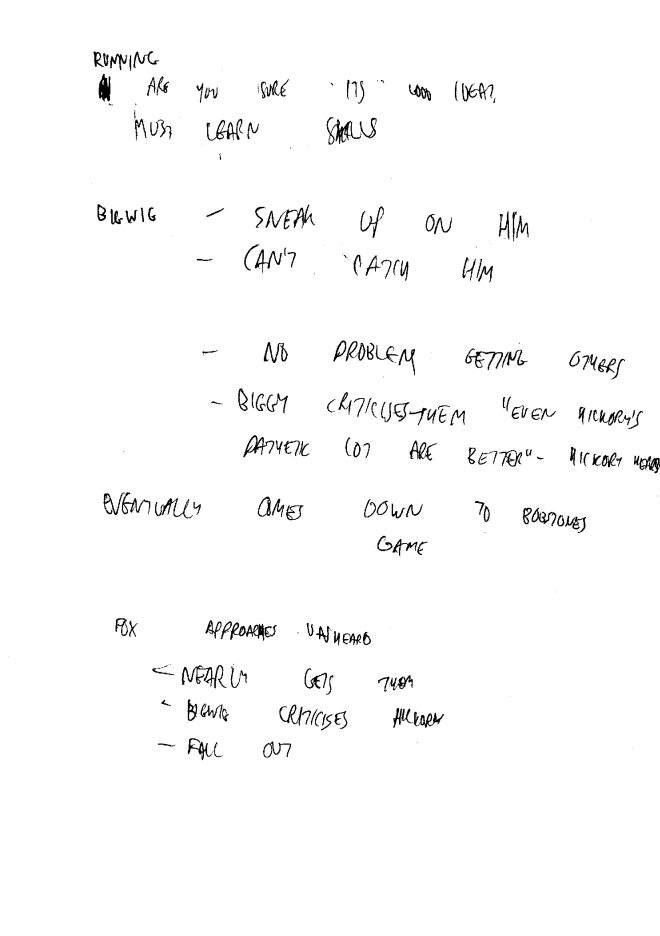 RUNNING
ARE YOU SURE ITS GOOD IDEA?
MUST LEARN SKILLS
BIGWIG - SNEAK UP ON HIM
- CAN'T CATCH HIM
- NO PROBLEM GETTING OTHERS
- BIGGY CRITICISES THEM "EVEN HICKORY'S
PATHETIC LOT ARE BETTER" - HICKORY HEARS
EVENTUALLY COMES DOWN TO BOBSTONES
GAME
FOX APPROACHES UNHEARD
- NEARLY GETS THEM
- BIGWIG CRITICISES HICKORY
- FALL OUT